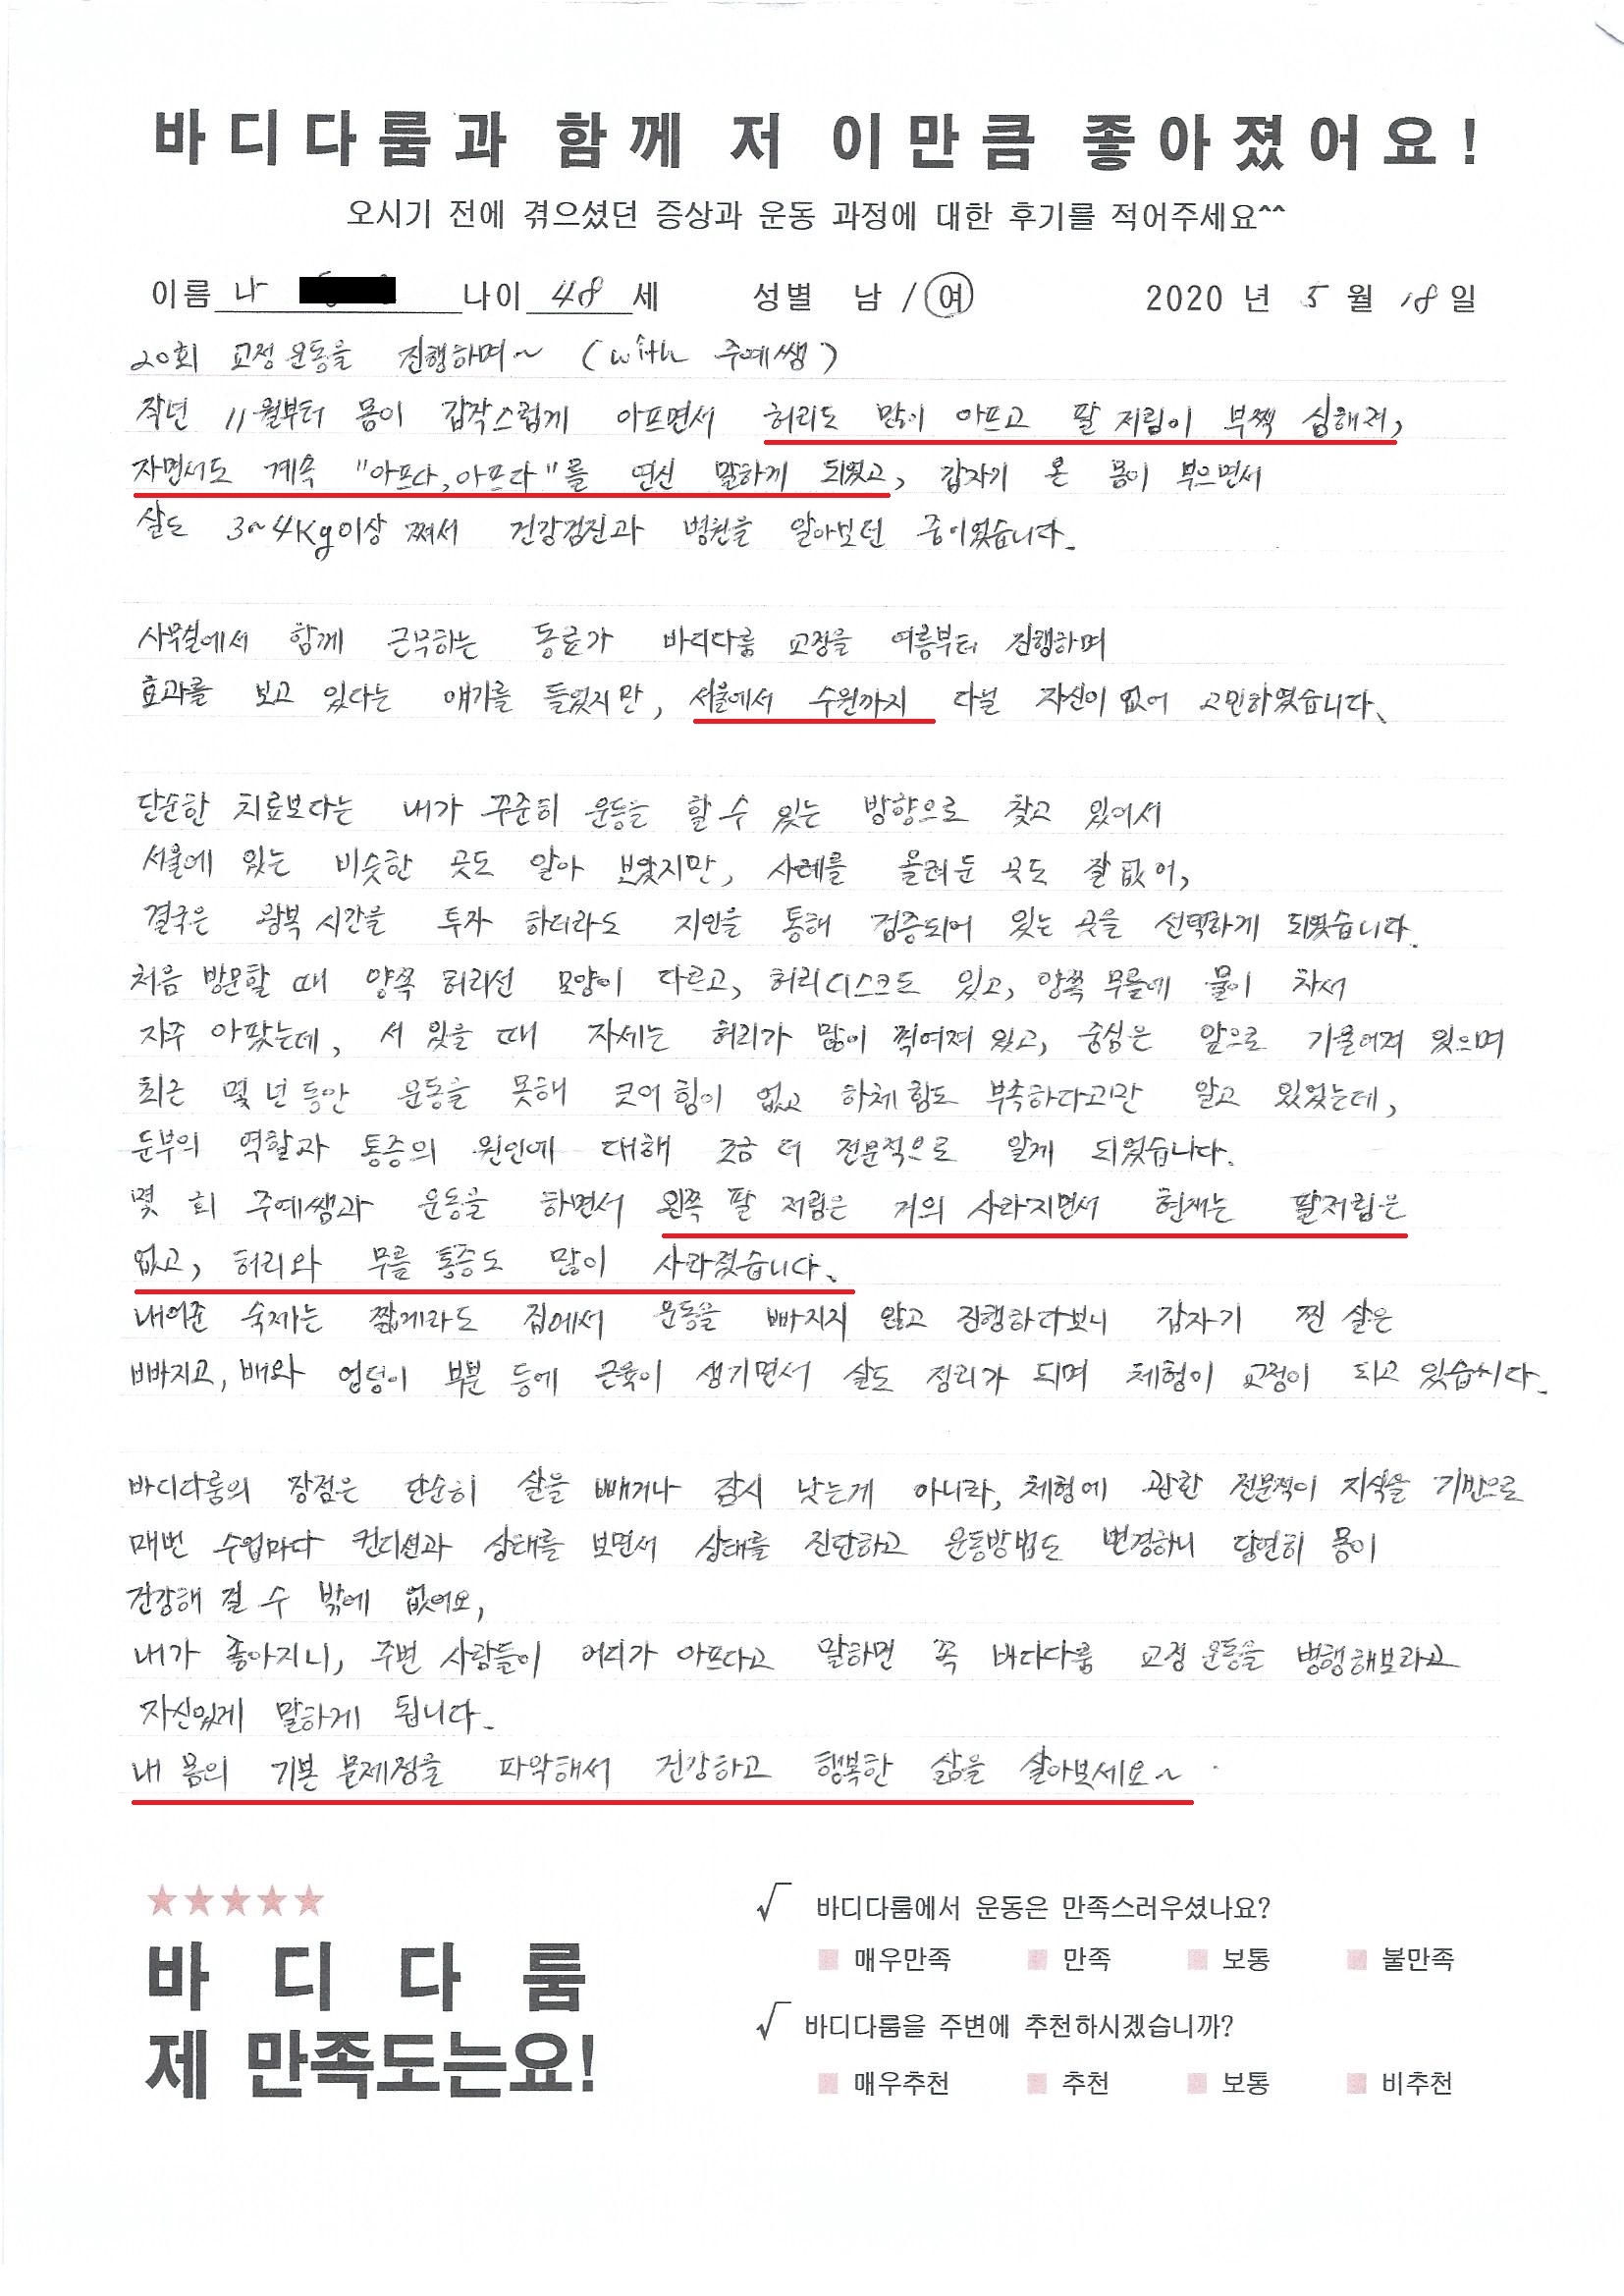 바디다룸과 함께 저 이만큼 좋아졌어요!
오시기 전에 겪으셨던 증상과 운동 과정에 대한 후기를 적어주세요^^
이름 나 나이 48 세 성별 남 / 여 2020 년 5 월 18 일
20회 교정운동을 진행하며~ (with 주예쌤)
작년 11월부터 몸이 갑작스럽게 아프면서 허리도 많이 아프고 팔 저림이 부쩍 심해져,
자면서도 계속 "아프다, 아프다"를 연신 말하게 되었고, 갑자기 온 몸이 부으면서
살도 3~4kg이상 쪄서 건강검진과 병원을 알아보던 중이었습니다.
사무실에서 함께 근무하는 동료가 바디다룸 교정을 여름부터 진행하며
효과를 보고 있다는 얘기를 들었지만, 서울에서 수원까지 다닐 자신이 없어 고민하였습니다.
단순한 치료보다는 내가 꾸준히 운동을 할 수 있는 방향으로 찾고 있어서
서울에 있는 비슷한 곳도 알아 보았지만, 사례를 올려둔 곳도 잘 없어,
결국은 왕복 시간을 투자 하더라도 지인을 통해 검증되어 있는 곳을 선택하게 되었습니다.
처음 방문할 때 양쪽 허리선 모양이 다르고, 허리디스크도 있고, 양쪽 무릎에 물이 차서
자주 아팠는데, 서 있을 때 자세는 허리가 많이 꺽여져 있고, 중심은 앞으로 기울어져 있으며
최근 몇 년 동안 운동을 못해 코어 힘이 없고 하체 힘도 부족하다고만 알고 있었는데,
둔부의 역할과 통증의 원인에 대해 조금 더 전문적으로 알게 되었습니다.
몇 회 주예쌤과 운동을 하면서 왼쪽 팔 저림은 거의 사라지면서 현재는 팔저림은
없고, 허리와 무릎 통증도 많이 사라졌습니다.
내어준 숙제는 짧게라도 집에서 운동을 빠지지 않고 진행하다보니 갑자기 찐 살은
빠지고, 배와 엉덩이 부분 등에 근육이 생기면서 살도 정리가 되며 체형이 교정이 되고 있습니다.
바디다룸의 장점은 단순히 살을 빼거나 잠시 낫는게 아니라, 체형에 관한 전문적이 지식을 기반으로
매번 수업마다 컨디션과 상태를 보면서 상태를 진단하고 운동방법도 변경하니 당연히 몸이
건강해 질 수 밖에 없어요,
내가 좋아지니, 주변 사람들이 어디가 아프다고 말하면 꼭 바디다룸 교정 운동을 병행해보라고
자신있게 말하게 됩니다.
내 몸의 기본 문제점을 파악해서 건강하고 행복한 삶을 살아보세요~
★★★★★
바디다룸
제 만족도는요!
√ 바디다룸에서 운동은 만족스러우셨나요?
매우만족 만족 보통 불만족
√ 바디다룸을 주변에 추천하시겠습니까?
매우추천 추천 보통 비추천